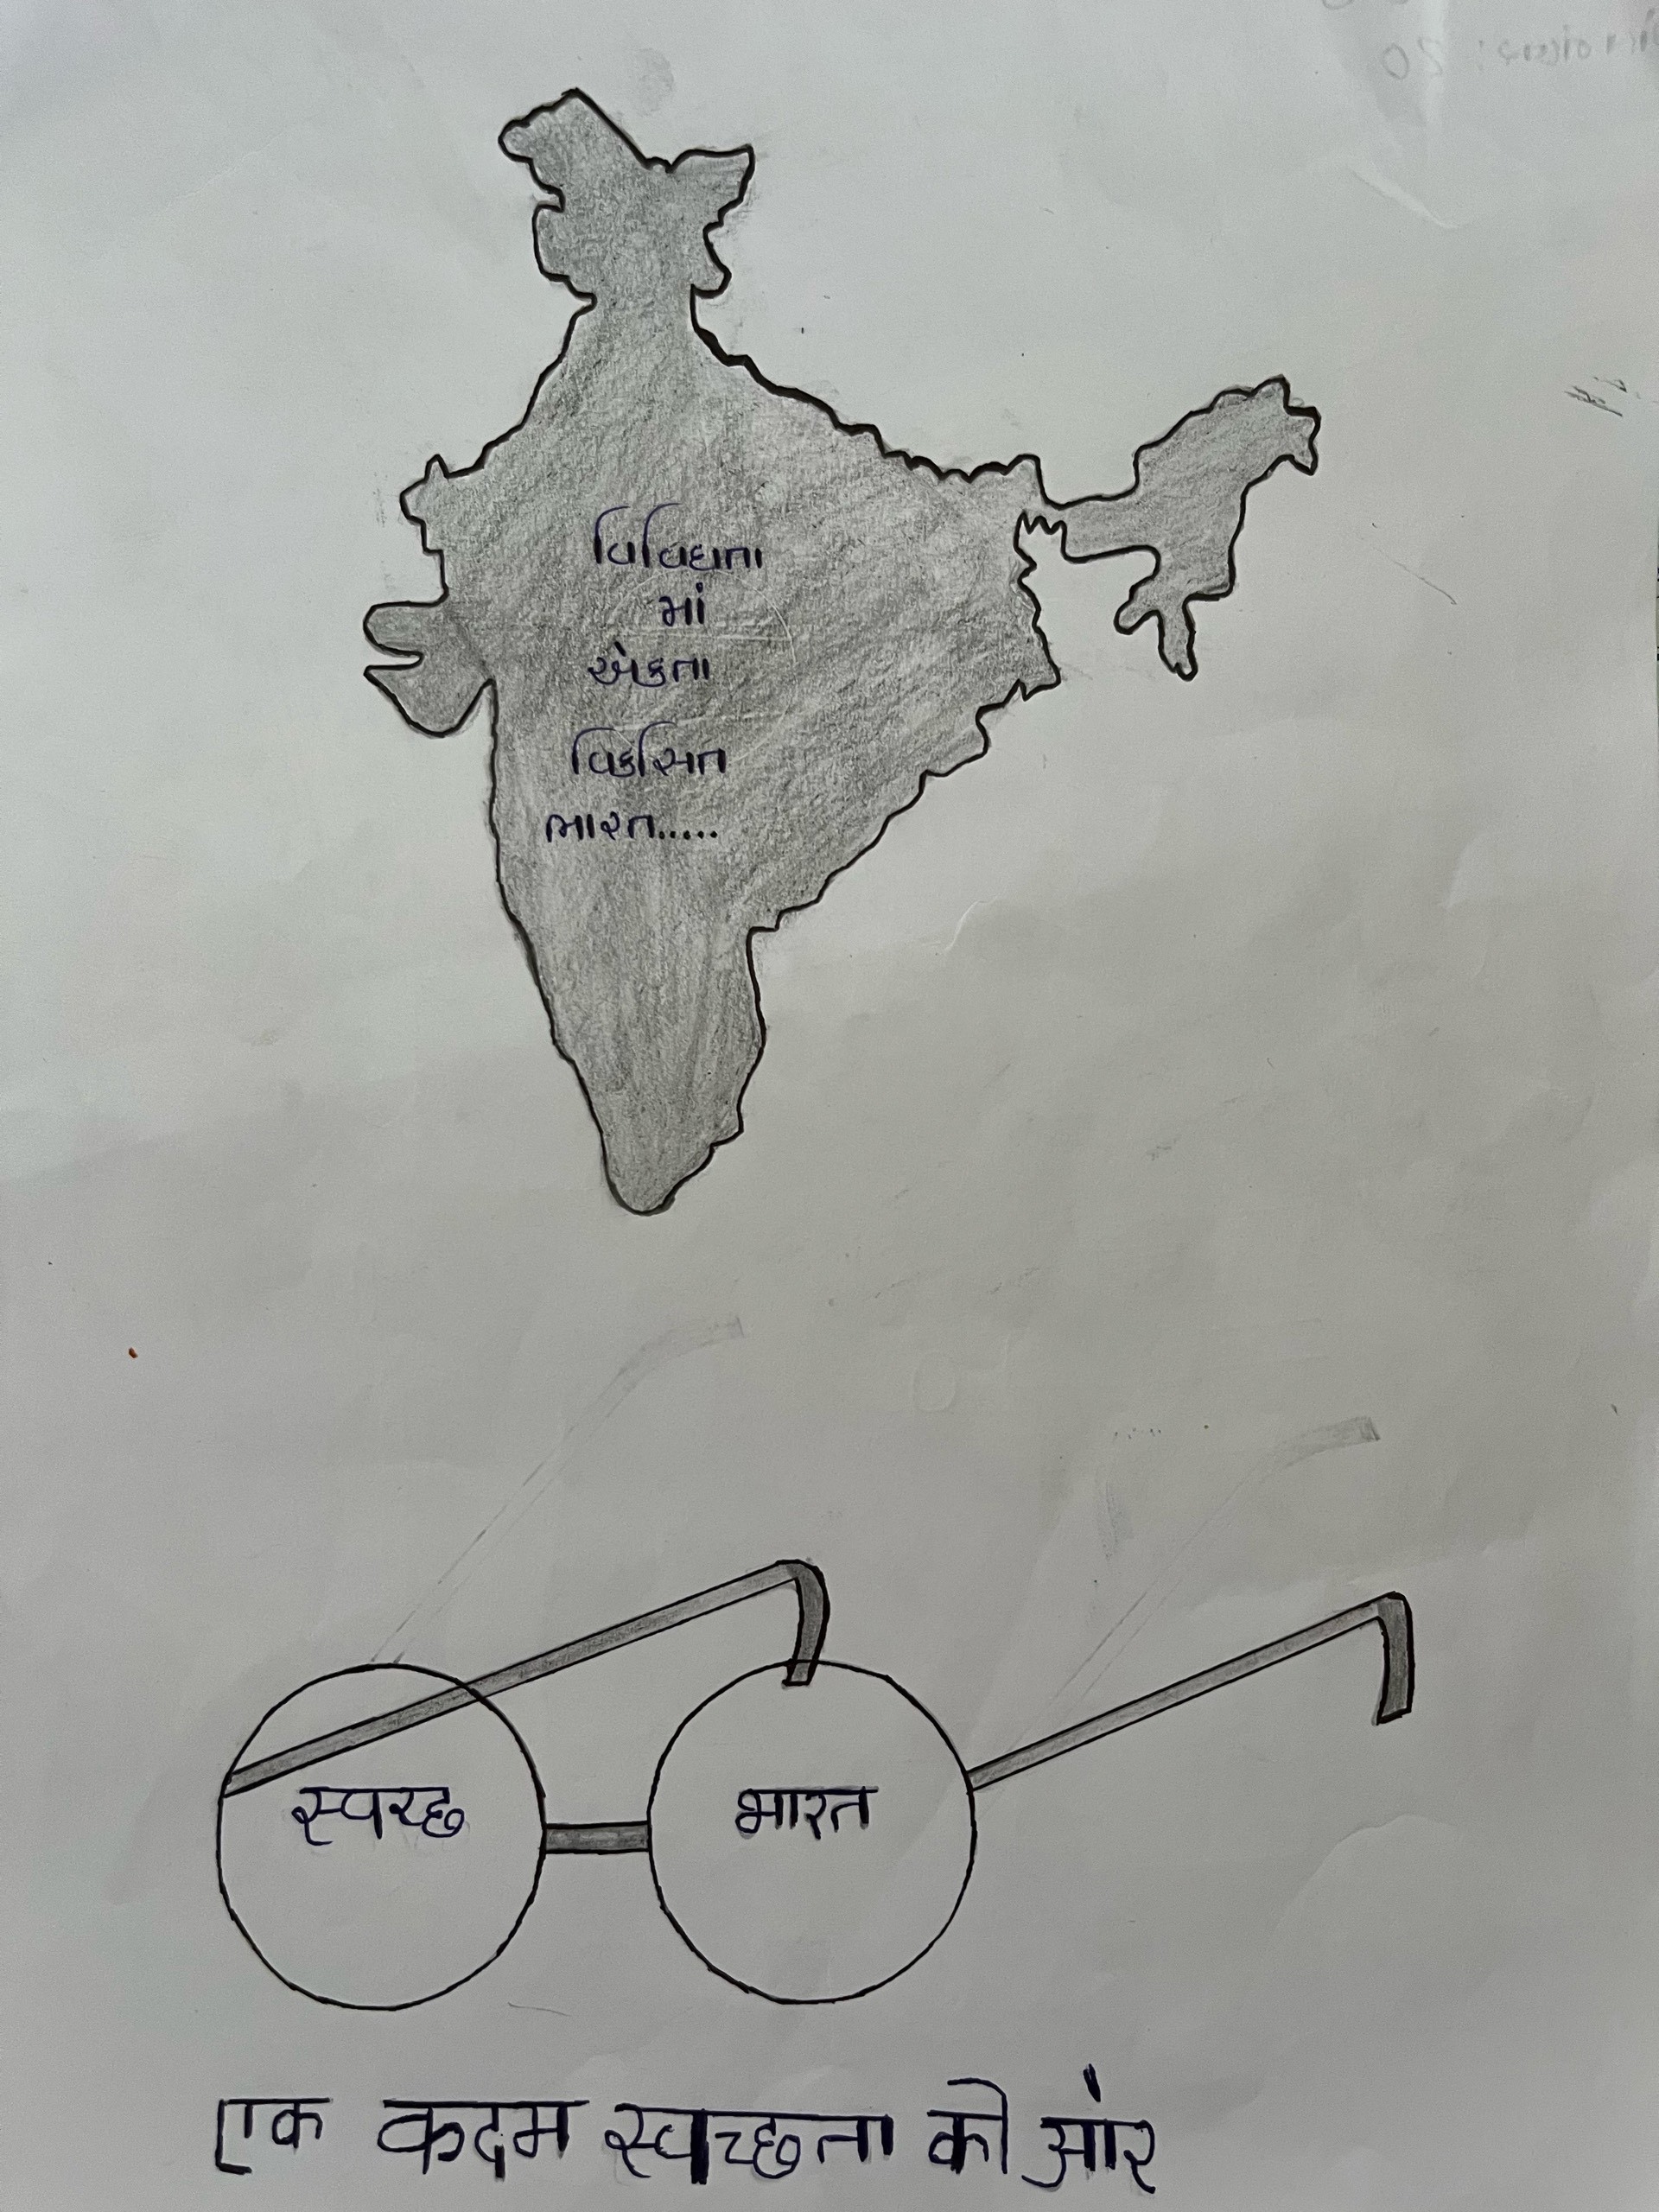 વિવિધતા
માં
એકતા
વિકસિત
ભારત.....
स्वच्छ भारत
एक कदम स्वच्छता की ओर